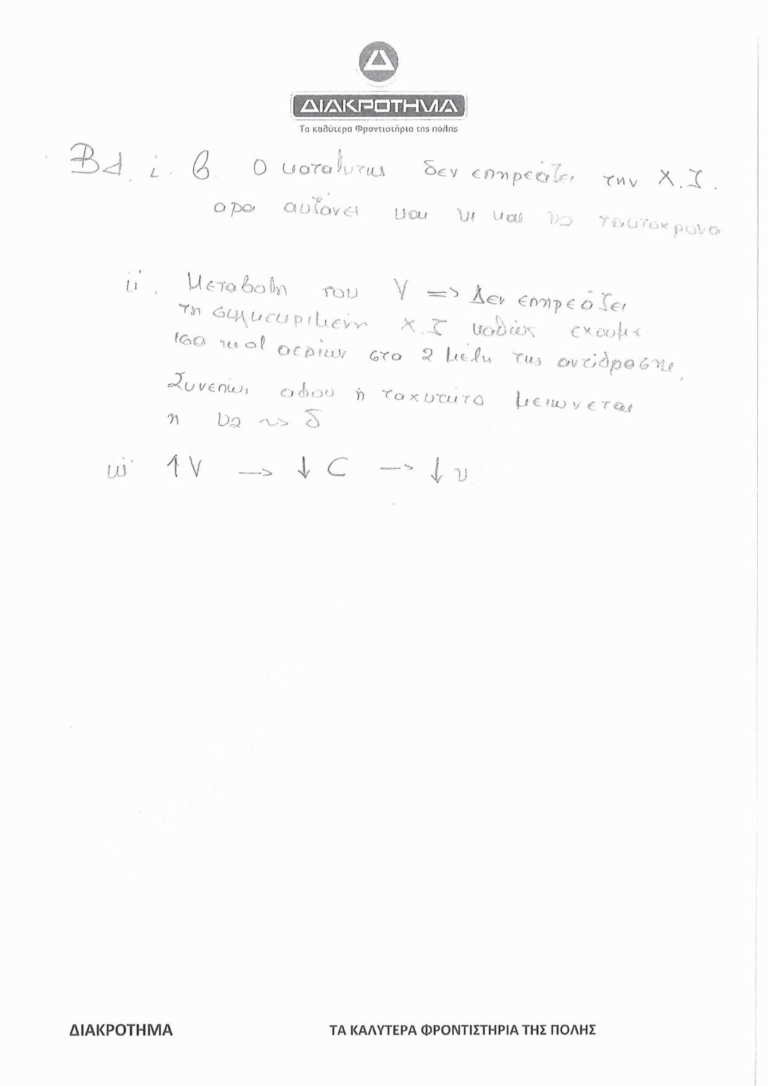 ΔΙΑΚΡΟΤΗΜΑ
Τα καλύτερα Φροντιστήρια της πόλης
Β1. i. β Ο καταλυτης δεν επηρεάζει την Χ.Ι.
αρα αυξάνει και υ1 και υ2 ταυτοχρονα
ii. Μεταβολη του V => Δεν επηρεάζει
τη συγκεκριμενη Χ.Ι καθώς εχουμε
ισα mol αεριων στα 2 μελη της αντιδρασης.
Συνεπως αφου η ταχυτητα μειωνεται
η υ2 ~> δ
iii ↑V –> ↓ C –> ↓ υ
ΔΙΑΚΡΟΤΗΜΑ ΤΑ ΚΑΛΥΤΕΡΑ ΦΡΟΝΤΙΣΤΗΡΙΑ ΤΗΣ ΠΟΛΗΣ